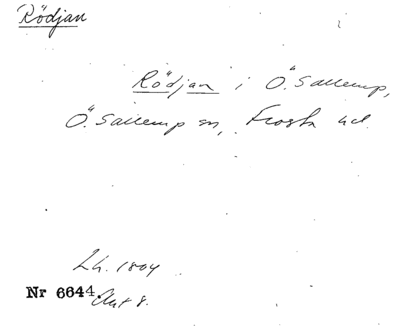 Rödjan
Rödjan i Ö. Sallerup,
Ö. Sallerup sn, Frosta hd.
Lh. 1804
Nr 6644. Akt 8.